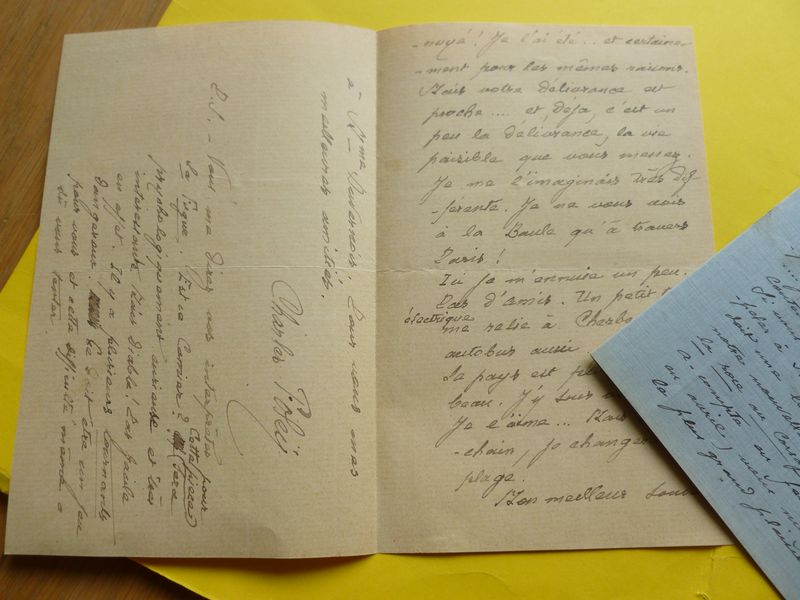 -nuyé! Je l'ai été... et certaine-
-ment pour les mêmes raisons.
Mais votre délivrance est
proche.... et, déjà, c'est un
peu la délivrance, la vie
paisible que vous menez.
Je me l'imaginais très dif-
-férente. Je ne vous vois
à la Baule qu'à travers
Paris!
Ici je m'ennuie un peu.
Pas d'Amis. Un petit
électrique
me relie à Cherbo
autobus aussi
Le pays est
beau. J'y suis
Je l'aime... Mais
-chain, je changer
plage.
Mon meilleur souv
à Mme Duvernois. Pour vous mes
meilleures amitiés.
Charles
P.S. - Vous me direz vos interprètes pour
La Fugue. Est-ce Carmier?
psychologiquement curieuse et très
intéressante. Mais Diable! Pas facile
en effet. Il y a plusieurs tournants
dangereux. Ce doit être un jeu
pour vous et cette difficulté même a
dû vous tenter.
Si vous
la roue au
à compte
le plus grand plaisir